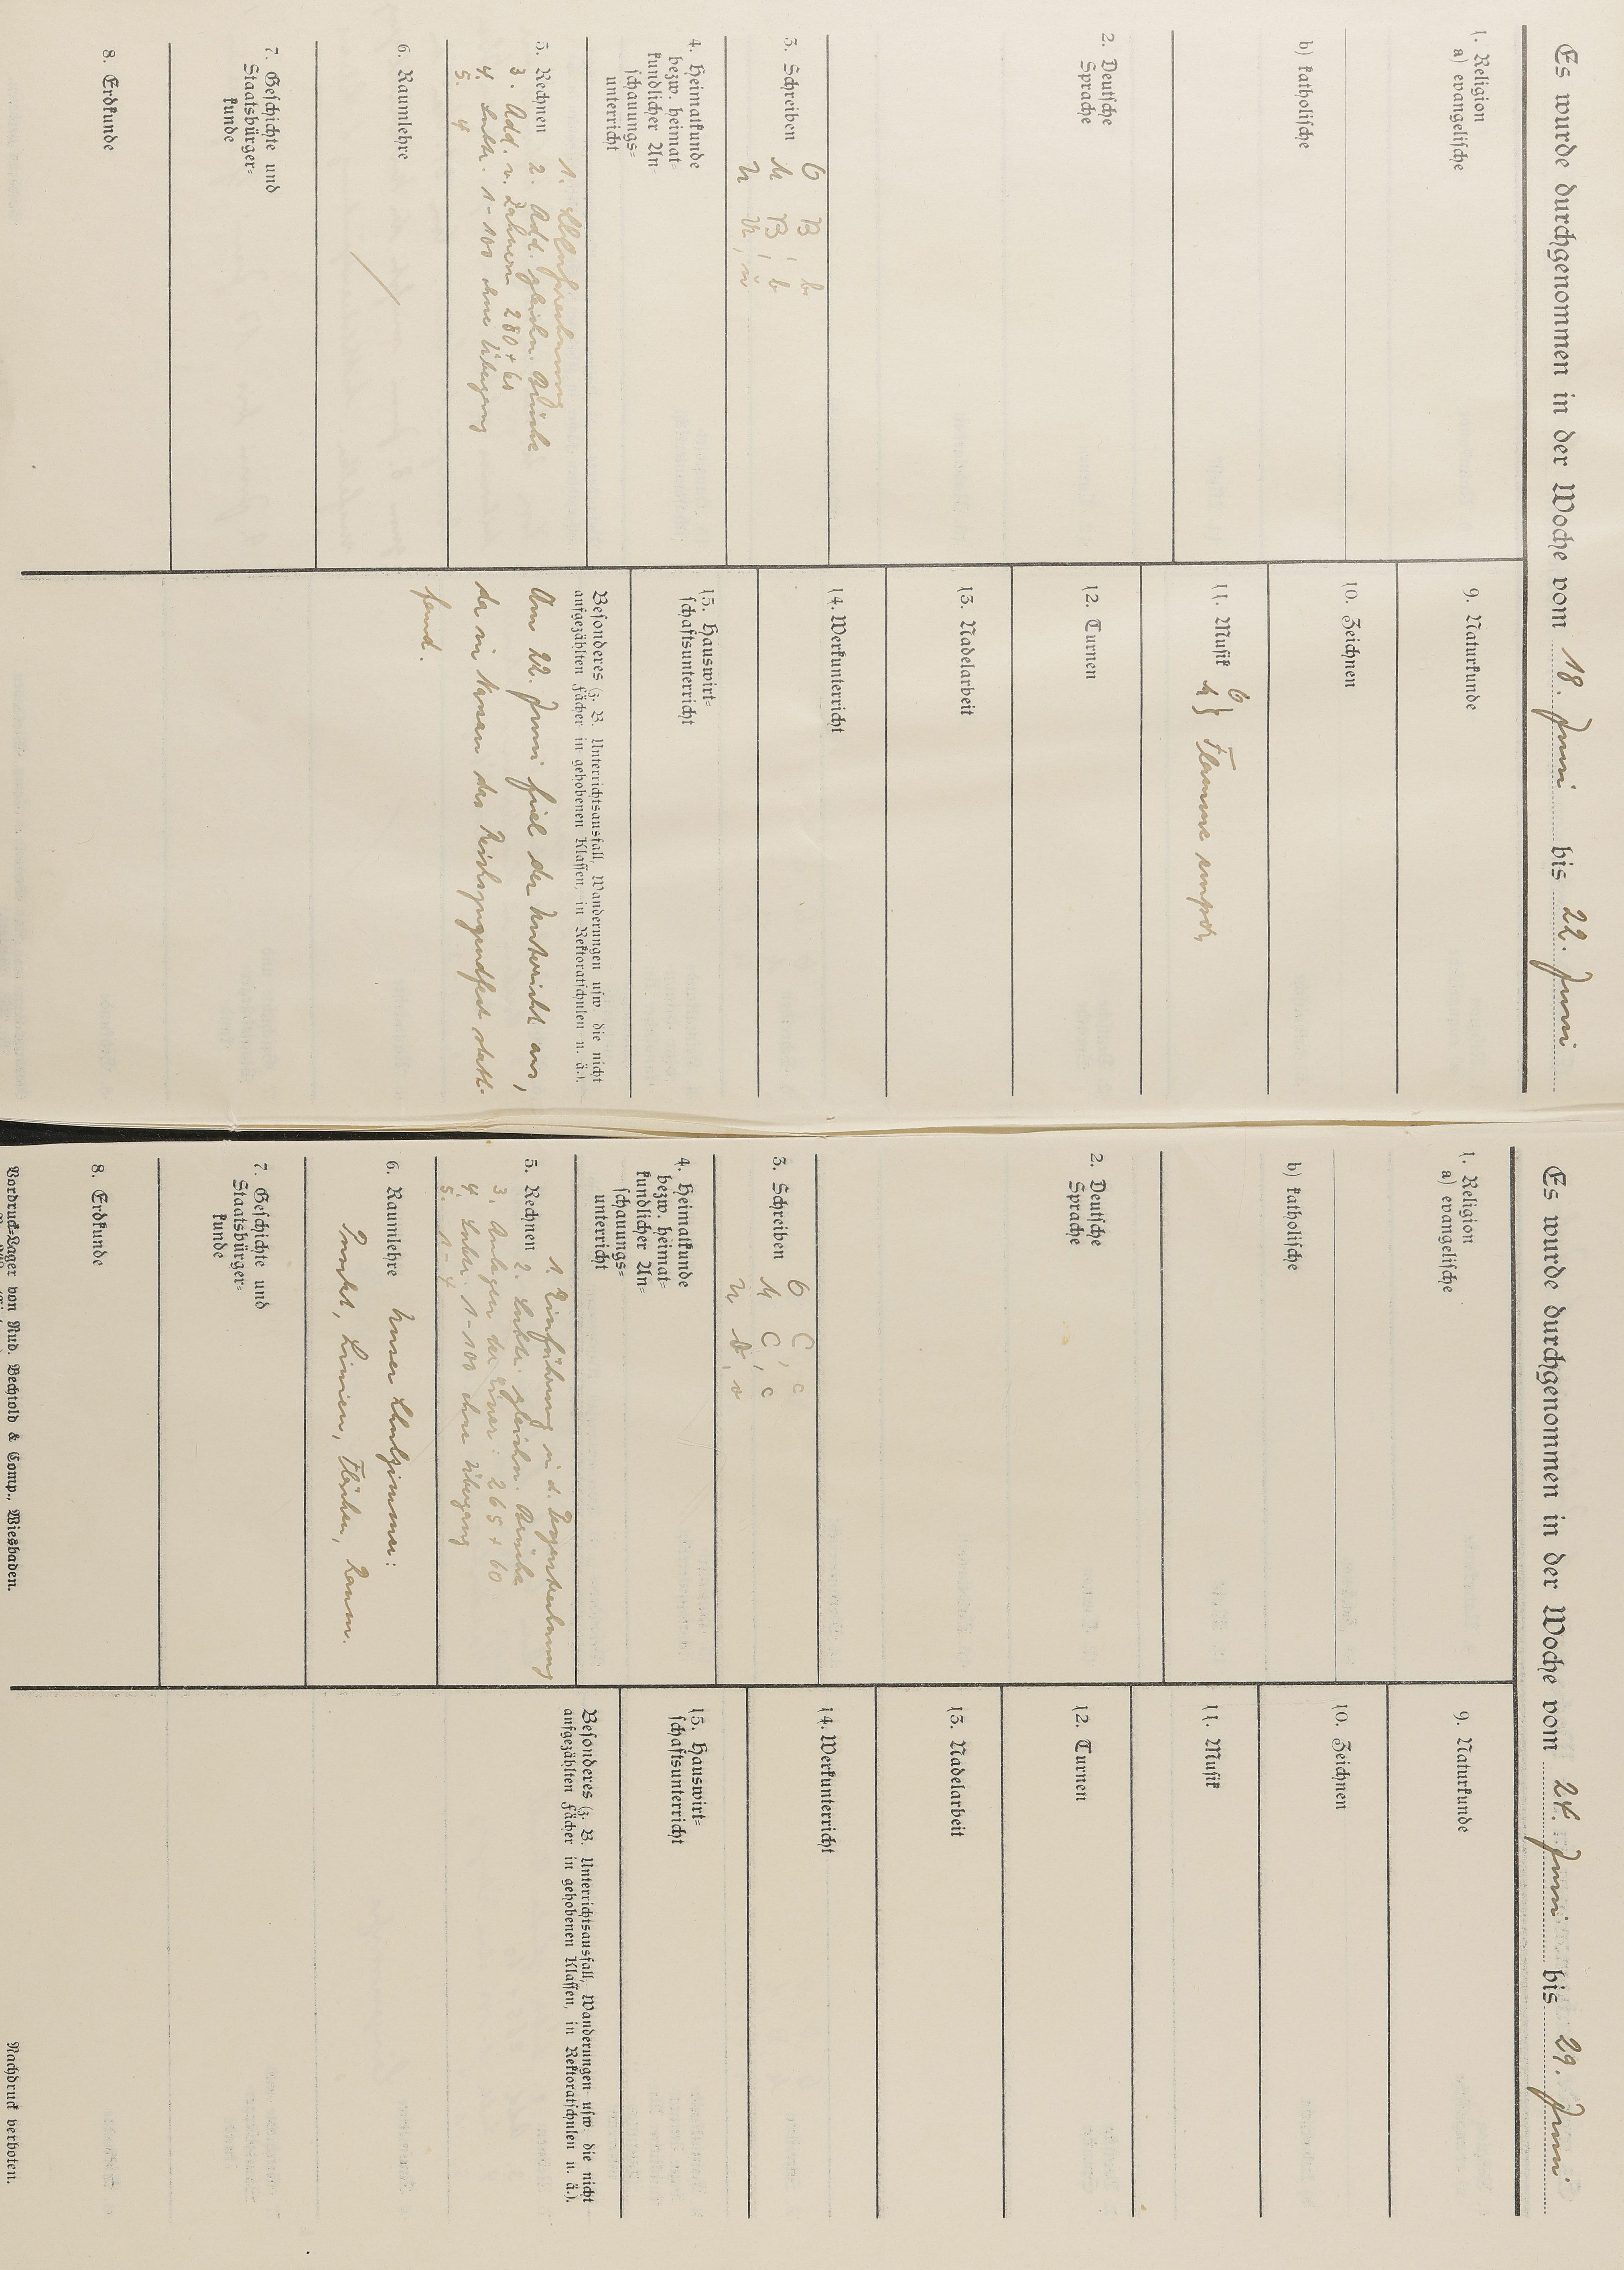 Es wurde durchgenommen in der Woche vom 18. Juni bis 22. Juni
1. Religion
a) evangelische
b) katholische
2. Deutsche
Sprache
3. Schreiben
O B b
M B, b
U W, w
4. Heimatkunde
bezw. heimat-
kundlicher An
schauungs-
unterricht
5. Rechnen
1.
2. Add. gleichn. Brüche
3. Add. v. Zehnern 280 + 60
4. Subtr. 1-100 ohne Übergang
5. 4
6. Raumlehre
7. Geschichte und
Staatsbürger-
kunde
8. Erdkunde
9. Naturkunde
10. Zeichnen
11. Musik O M } Flamme empor
12. Turnen
13. Nadelarbeit
14. Werkunterricht
15. Hauswirt-
schaftsunterricht
Besonderes (z. B. Unterrichtsausfall, Wanderungen usw. die nicht
aufgezählten Fächer in gehobenen Klassen, in Rektoratschulen u. ä.).
Am 22. Juni fiel der Unterricht aus,
da in Nassau das Reichsjugendfest statt-
fand.
Es wurde durchgenommen in der Woche vom 24. Juni bis 29. Juni
1. Religion
a) evangelische
b) katholische
2. Deutsche
Sprache
3. Schreiben
O C, c
M C, c
U V, v
4. Heimatkunde
bezw. heimat-
kundlicher An-
schauungs-
unterricht
5. Rechnen
1. Einführung in d. Prozentrechnung
2. Subtr. gleichn. Brüche
3. der Einer: 265 + 60
4. Subtr. 1-100 ohne Übergang
5. 1-4
6. Raumlehre Unser Schulzimmer:
Punkt, Linien, Flächen, Raum.
7. Geschichte und
Staatsbürger-
kunde
8. Erdkunde
9. Naturkunde
10. Zeichnen
11. Musik
12. Turnen
13. Nadelarbeit
14. Werkunterricht
15. Hauswirt-
schaftsunterricht
Besonderes (z. B. Unterrichtsausfall, Wanderungen usw. die nicht
aufgezählten Fächer in gehobenen Klassen, in Rektoratschulen u. ä.).
Vordruck-Lager von Rud. Bechtold & Comp., Wiesbaden. Nachdruck verboten.